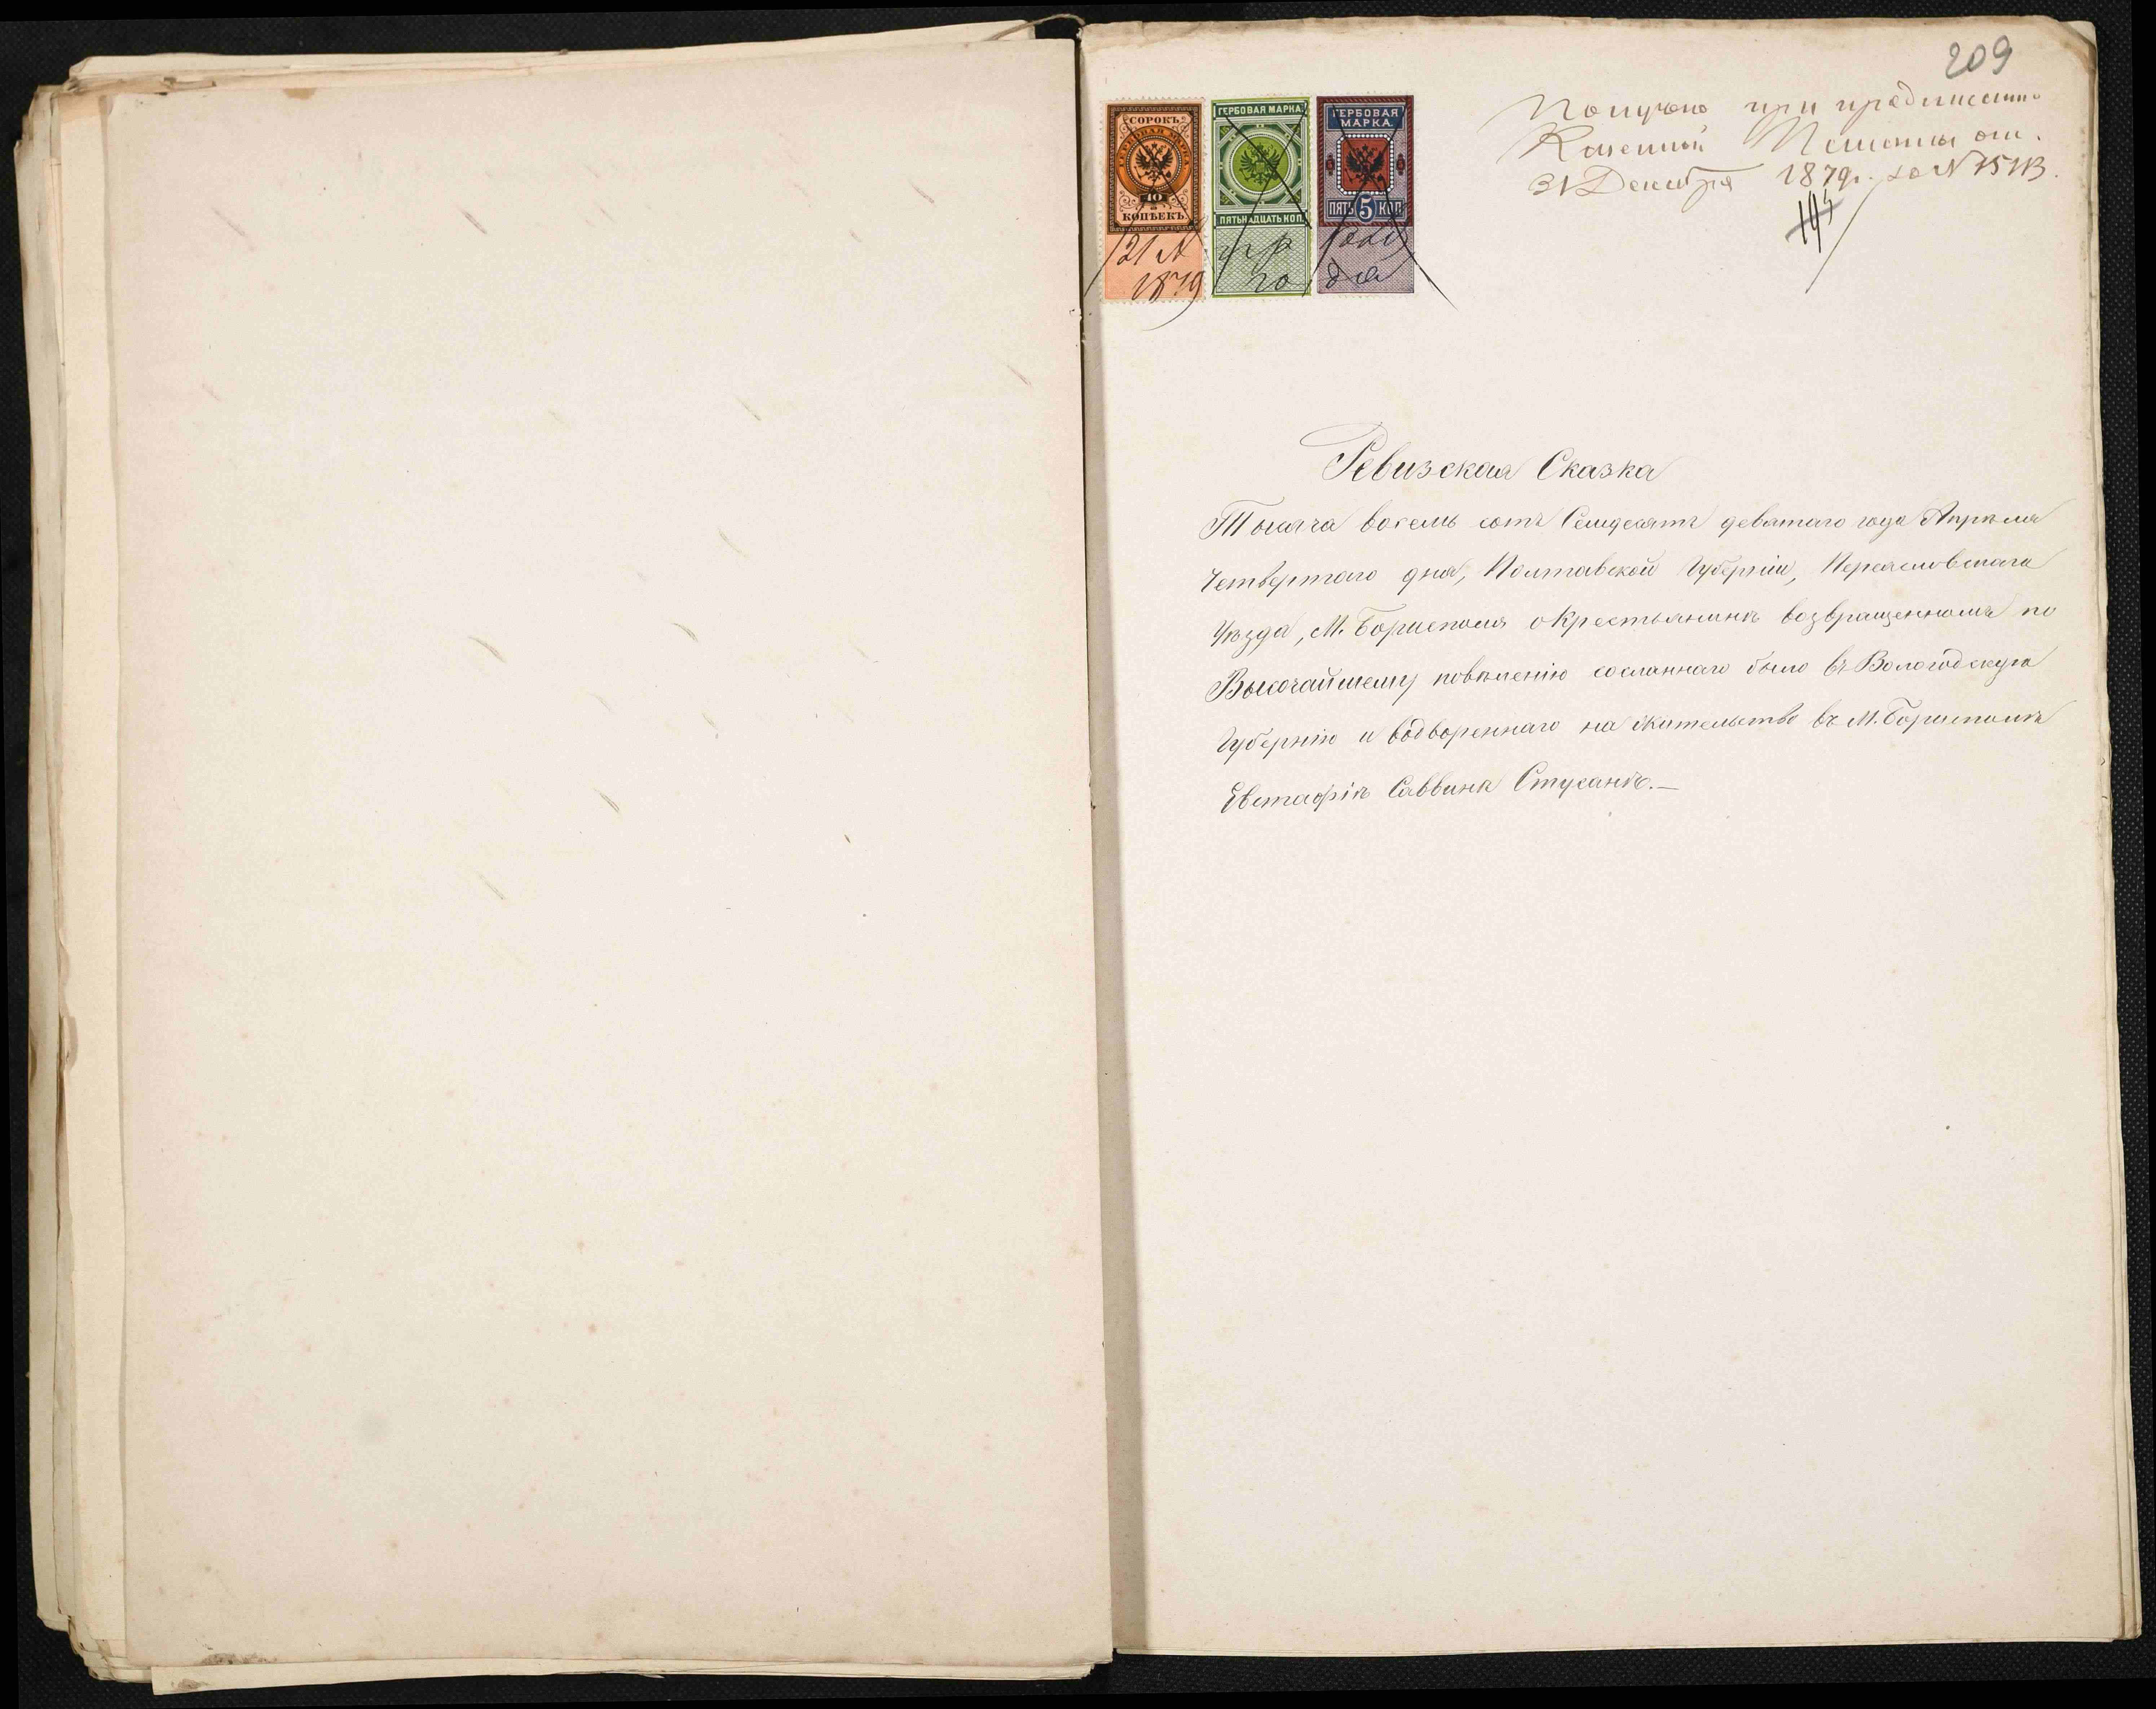 209
Получено при предписании
Казенной Палаты от
31 Декабря 1879г. за № 15113.
СОРОКЪ
ГЕРБОВАЯ МАРКА
КОПѢЕКЪ
21 А
1879
ГЕРБОВАЯ МАРКА.
ПЯТЬНАДЦАТЬ КОП.
пр
го
ГЕРБОВАЯ
МАРКА.
ПЯТЬ 5 КОП
да
Ревизская Сказка
Тысяча восемь сотъ Семдесятъ девятаго года Апрѣля
Четвертаго дня, Полтавской Губерніи, Переяславскаго
Уѣзда, М. Борисполя о крестьянинѣ возвращенномъ по
Высочайшему повѣленію сосланнаго было въ Вологодскую
Губернію и водвореннаго на жительство въ М. Борисполѣ
Евстафіѣ Саввинѣ Стусанѣ.—